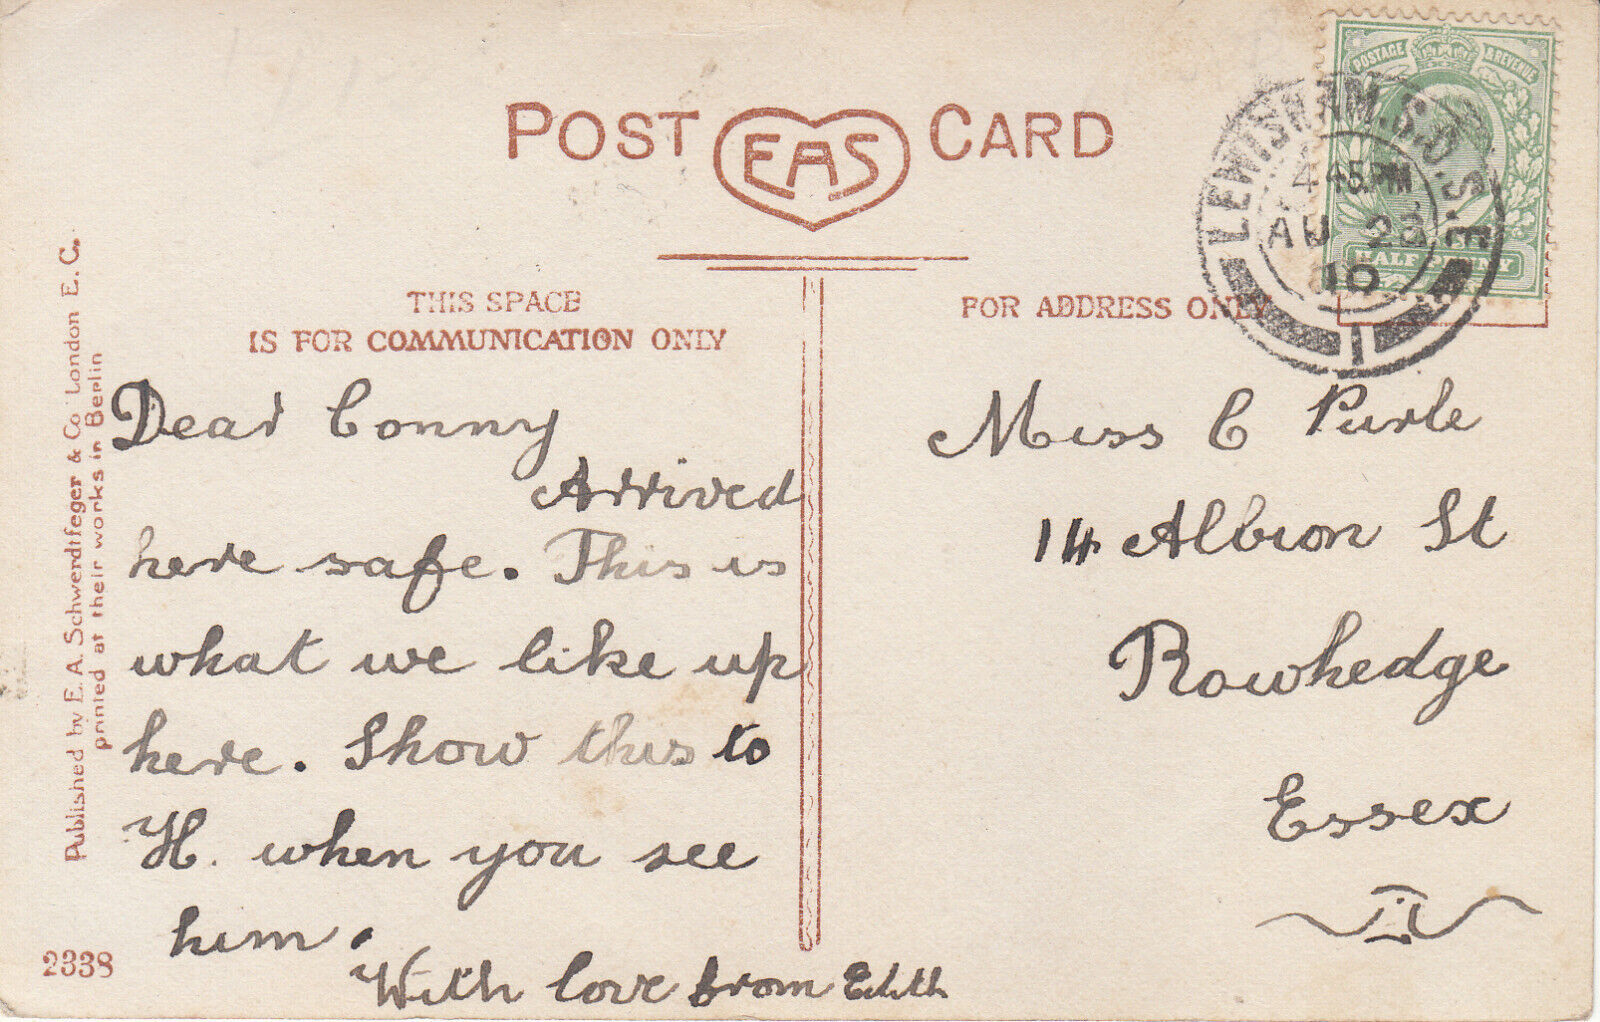 POST EAS CARD
POSTAGE & REVENUE
HALF PENNY
LEWISHAM.S.O. S.E.
4 45 PM
AU 23
10
1
THIS SPACE
IS FOR COMMUNICATION ONLY
FOR ADDRESS ONLY
Published by E. A. Schwerdtfeger & Co London E. C.
printed at their works in Berlin
Dear Conny
Arrived
here safe. This is
what we like up
here. Show this to
H. when you see
him.
With love from Edith
Miss C Purle
14 Albion St
Rowhedge
Essex
2338